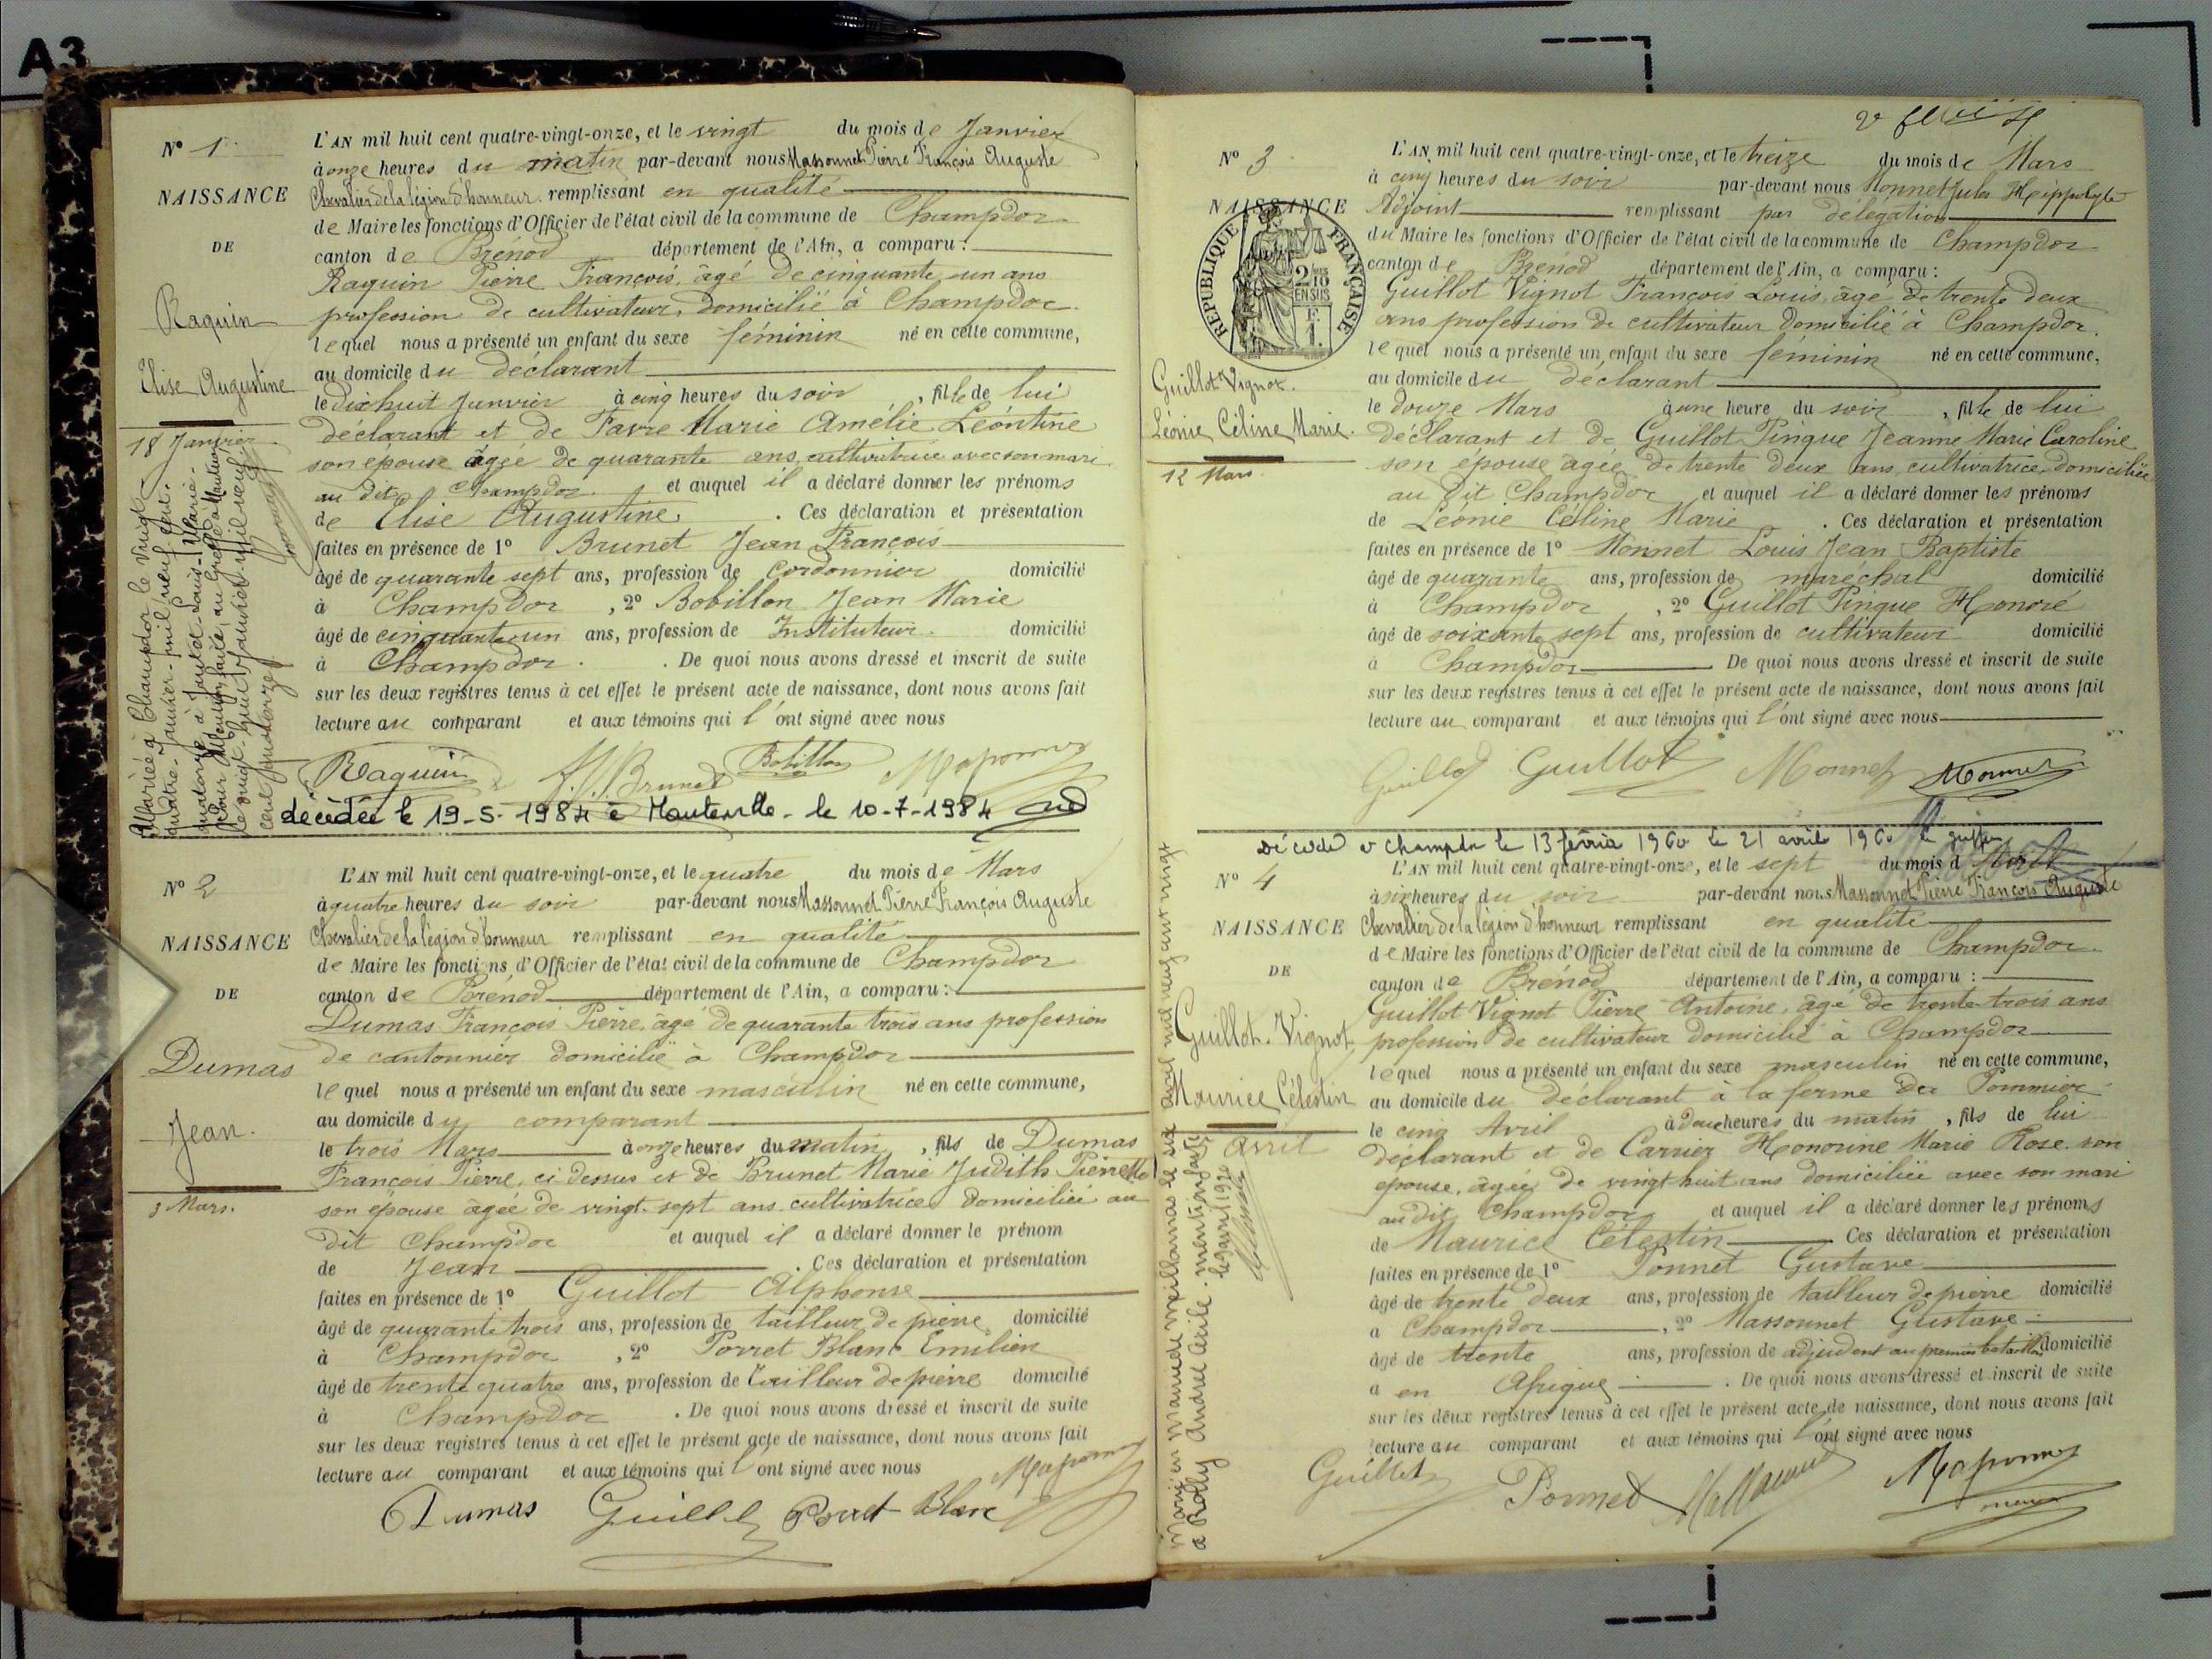 A3
N° 1
NAISSANCE
DE
Raquin
Elise Augustine
18 Janvier
L'AN mil huit cent quatre-vingt-onze, et le vingt du mois de Janvier
à onze heures du matin par-devant nous Massonnet Pierre François Auguste
Chevalier de la légion d'honneur remplissant en qualité
de Maire les fonctions d'Officier de l'état civil de la commune de Champdor
canton de Brénod département de l'Ain, a comparu :
Raquin Pierre François, âgé de cinquante un ans
profession de cultivateur, domicilié à Champdor
lequel nous a présenté un enfant du sexe féminin né en cette commune,
au domicile du déclarant
le dix huit Janvier à cinq heures du soir, fille de lui
déclarant et de Favre Marie Amélie Léontine
son épouse âgée de quarante ans, cultivatrice avec son mari
au dit Champdor et auquel il a déclaré donner les prénoms
de Elise Augustine . Ces déclaration et présentation
faites en présence de 1° Brunet Jean François
âgé de quarante sept ans, profession de cordonnier domicilié
à Champdor , 2° Bobillon Jean Marie
âgé de cinquante un ans, profession de Instituteur domicilié
à Champdor . De quoi nous avons dressé et inscrit de suite
sur les deux registres tenus à cet effet le présent acte de naissance, dont nous avons fait
lecture au comparant et aux témoins qui l'ont signé avec nous
Raquin J. F. Brunet Bobillon
décédée le 19-5-1984 à Hauteville - le 10-7-1984
Mariée à Champdor le vingt
quatre Janvier mil neuf cent
quatorze à Louis Marie
N° 2
NAISSANCE
DE
Dumas
Jean
3 Mars.
L'AN mil huit cent quatre-vingt-onze, et le quatre du mois de Mars
à quatre heures du soir par-devant nous Massonnet Pierre François Auguste
Chevalier de la légion d'honneur remplissant en qualité
de Maire les fonctions d'Officier de l'état civil de la commune de Champdor
canton de Brénod département de l'Ain, a comparu :
Dumas François Pierre, âgé de quarante trois ans profession
de cantonnier domicilié à Champdor
lequel nous a présenté un enfant du sexe masculin né en cette commune,
au domicile du comparant
le trois Mars à onze heures du matin, fils de Dumas
François Pierre, ci dessus et de Brunet Marie Judith Pierrette
son épouse âgée de vingt-sept ans cultivatrice domiciliée au
dit Champdor et auquel il a déclaré donner le prénom
de Jean . Ces déclaration et présentation
faites en présence de 1° Guillot Alphonse
âgé de quarante trois ans, profession de tailleur de pierre domicilié
à Champdor , 2° Porret Blanc Emilien
âgé de trente quatre ans, profession de Tailleur de pierre domicilié
à Champdor . De quoi nous avons dressé et inscrit de suite
sur les deux registres tenus à cet effet le présent acte de naissance, dont nous avons fait
lecture au comparant et aux témoins qui l'ont signé avec nous
Dumas Guillot Porret Blanc
N° 3
NAISSANCE
RÉPUBLIQUE FRANÇAISE
2/10
EN SUS
F.
1.
Guillot Vignot.
Léonie Céline Marie.
12 Mars
L'AN mil huit cent quatre-vingt-onze, et le treize du mois de Mars
à cinq heures du soir par-devant nous Monnet Jules Hyppolyte
Adjoint remplissant par délégation
du Maire les fonctions d'Officier de l'état civil de la commune de Champdor
canton de Brénod département de l'Ain, a comparu :
Guillot Vignot François Louis, âgé de trente deux
ans profession de cultivateur domicilié à Champdor.
lequel nous a présenté un enfant du sexe féminin né en cette commune,
au domicile du déclarant
le douze Mars à une heure du soir, fille de lui
déclarant et de Guillot Pingue Jeanne Marie Caroline
son épouse âgée de trente deux ans, cultivatrice, domiciliée
au dit Champdor et auquel il a déclaré donner les prénoms
de Léonie Céline Marie . Ces déclaration et présentation
faites en présence de 1° Monnet Louis Jean Baptiste
âgé de quarante ans, profession de maréchal domicilié
à Champdor , 2° Guillot Pingue Honoré
âgé de soixante sept ans, profession de cultivateur domicilié
à Champdor De quoi nous avons dressé et inscrit de suite
sur les deux registres tenus à cet effet le présent acte de naissance, dont nous avons fait
lecture au comparant et aux témoins qui l'ont signé avec nous
Guillot Guillot Monnet Monnet
Décédé à Champdor le 13 février 1960 le 21 avril 1960
N° 4
NAISSANCE
DE
Guillot-Vignot
Maurice Célestin
5 avril
L'AN mil huit cent quatre-vingt-onze, et le sept du mois d
à six heures du soir par-devant nous Massonnet Pierre François Auguste
Chevalier de la légion d'honneur remplissant en qualité
de Maire les fonctions d'Officier de l'état civil de la commune de Champdor
canton de Brénod département de l'Ain, a comparu :
Guillot Vignot Pierre Antoine, âgé de trente-trois ans
profession de cultivateur domicilié à Champdor
lequel nous a présenté un enfant du sexe masculin né en cette commune,
au domicile du déclarant à la ferme du Pommier
le cinq Avril à heures du matin, fils de lui
déclarant et de Carrier Honorine Marie Rose son
épouse, âgée de vingt huit ans domiciliée avec son mari
au dit Champdor et auquel il a déclaré donner les prénoms
de Maurice Célestin Ces déclaration et présentation
faites en présence de 1° Ponnet Gustave
âgé de trente deux ans, profession de tailleur de pierre domicilié
à Champdor , 2° Massonnet Gustave
âgé de trente ans, profession de adjudant au premier bataillon domicilié
à en Afrique . De quoi nous avons dressé et inscrit de suite
sur les deux registres tenus à cet effet le présent acte de naissance, dont nous avons fait
lecture au comparant et aux témoins qui l'ont signé avec nous
Guillot Ponnet